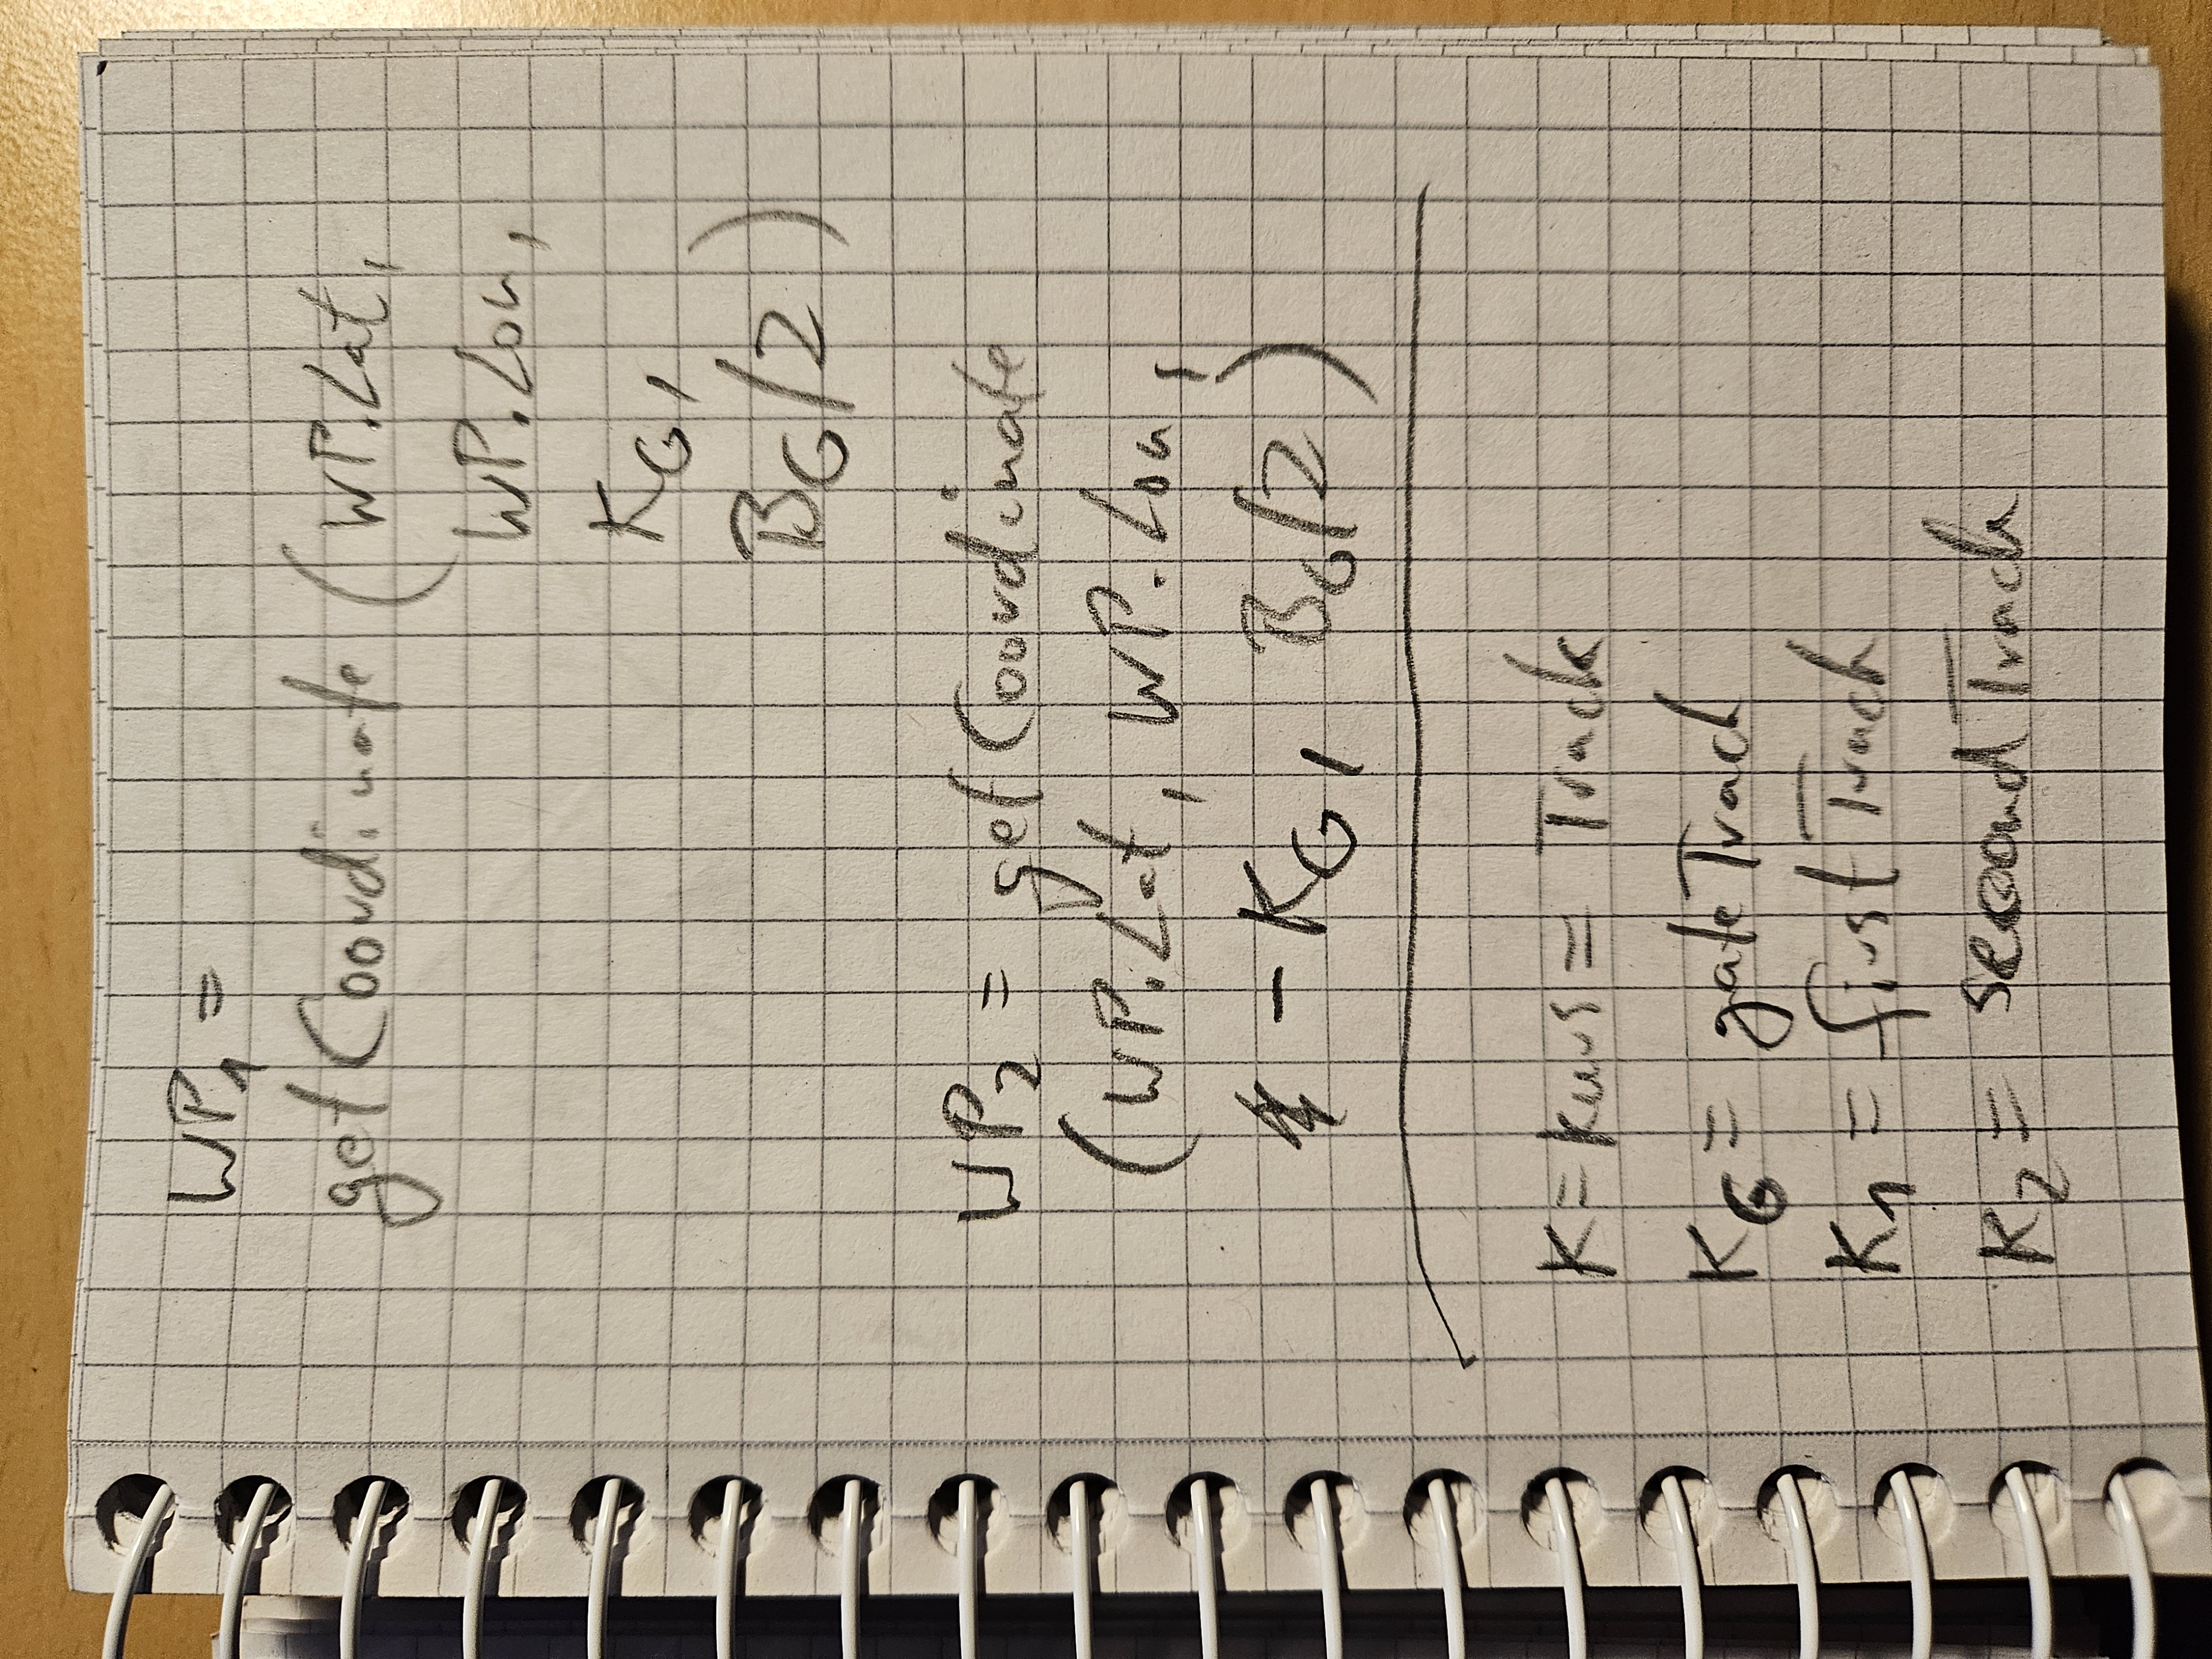 WP₁ =
getCoordinate (WP.Lat,
WP.Lon,
K_G,
B_G/2)
WP₂ = getCoordinate
(WP.Lat, WP.Lon,
- K_G, B_G/2)
K = Kurs = Track
K_G = gateTrack
K₁ = firstTrack
K₂ = secondTrack